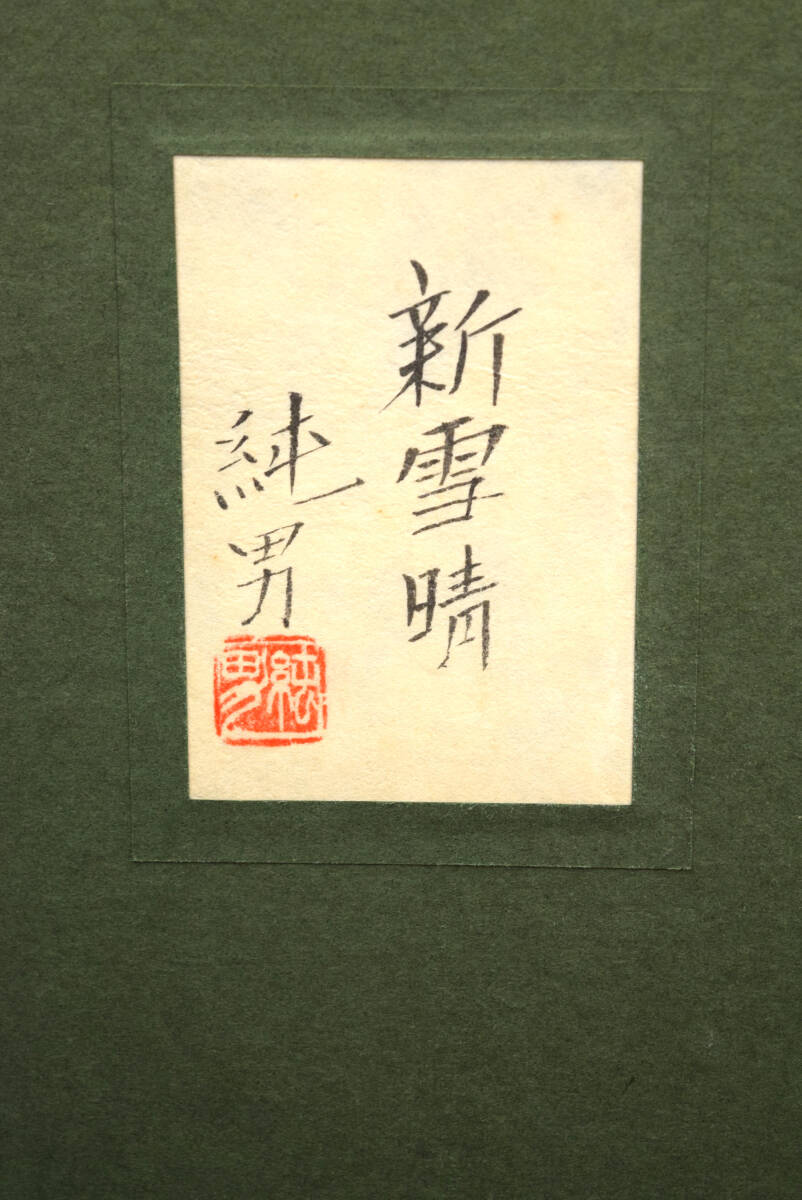 新雪晴
純男
純男